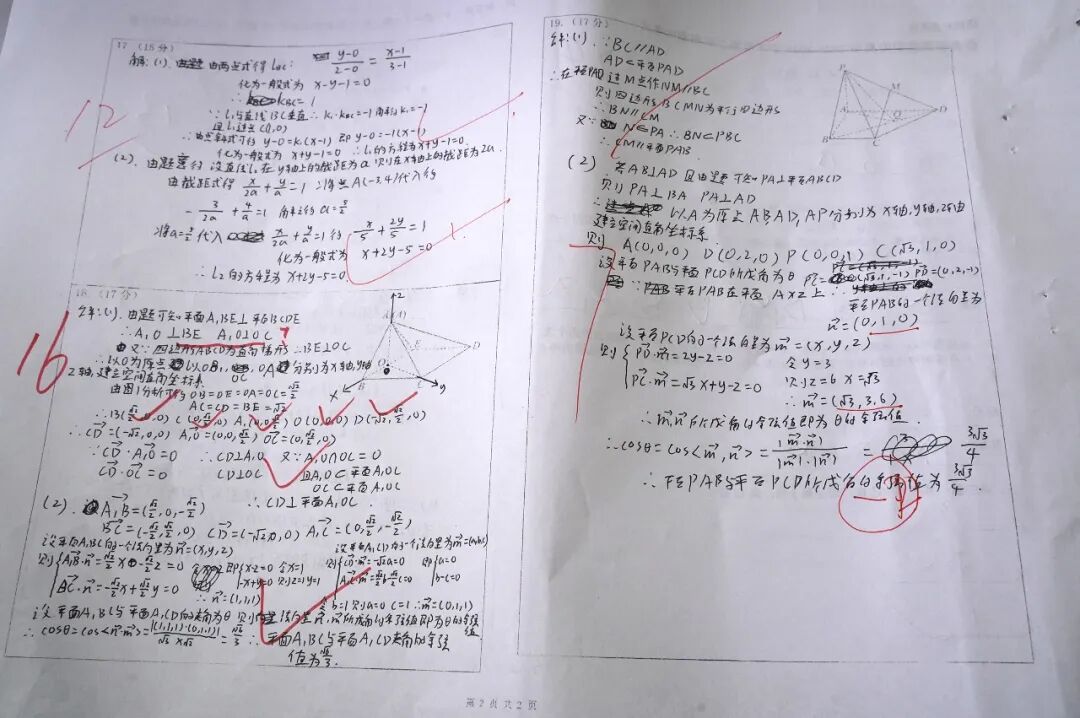 17. (15分)
解:(1).由题 由两点式得 lBC: y-0/2-0 = x-1/3-1
化为一般式为 x-y-1=0
∴ kBC=1
∵l₁与直线BC垂直 ∴k₁·kBC=-1 解得k₁=-1
且l₁过点C(1,0)
∴由点斜式可得 y-0=k₁(x-1) 即 y-0=-1(x-1)
化为一般式为 x+y-1=0 ∴l₁的方程为x+y-1=0
(2).由题意得 设直线l₂在y轴上的截距为a 则在x轴上的截距为2a.
由截距式得 x/2a + y/a =1 将点A(-3,4)代入得
-3/2a + 4/a =1 解之得 a=5/2
将a=5/2代入 x/2a + y/a =1得 x/5 + 2y/5 =1
化为一般式为 x+2y-5=0
∴l₂的方程为 x+2y-5=0.
12
18. (17分)
解:(1).由题可知平面A₁BE⊥平面BCDE
∴A₁O⊥BE A₁O⊥OC
又∵四边形ABCD为直角梯形∴BE⊥OC
∴以O为原点 以OB, OC, OA₁分别为x轴,y轴,
z轴,建立空间直角坐标系
由图1分析可得 OB=OE=OA=OC=√2/2
AC=CD=BE=√2
∴B(√2/2,0,0) C(0,√2/2,0) A₁(0,0,√2/2) O(0,0,0) D(-√2,√2/2,0)
∴CD=(-√2,0,0) A₁O=(0,0,√2/2) OC=(0,√2/2,0)
∵CD·A₁O=0 ∴CD⊥A₁O 又∵A₁O∩OC=O
CD·OC=0 CD⊥OC 且A₁O⊂平面A₁OC
OC⊂平面A₁OC
∴CD⊥平面A₁OC.
(2). A₁B=(√2/2,0,-√2/2)
BC=(-√2/2,√2/2,0) CD=(-√2,0,0) A₁C=(0,√2/2,-√2/2)
设平面A₁BC的一个法向量为n=(x,y,z) 设平面A₁CD的一个法向量为m=(a,b,c)
则{A₁B·n=√2/2x-√2/2z=0 即{x-z=0 令x=1 则{CD·m=-√2a=0 {a=0
BC·n=-√2/2x+√2/2y=0 -x+y=0 则z=1 y=1 A₁C·m=√2/2b-√2/2c=0 b-c=0
∴n=(1,1,1) 令b=1则a=0 c=1 ∴m=(0,1,1)
设平面A₁BC与平面A₁CD的夹角为θ 则 法向量n,m所成角的余弦值即为θ的余弦值
∴cosθ=cos<n·m>=|(1,1,1)·(0,1,1)|/√3×√2=√6/3 ∴平面A₁BC与平面A₁CD夹角的余弦
值为√6/3.
16
z
A₁(A)
E
D
O
B
C
x
y
19. (17分)
解:(1).∵BC∥AD
AD⊂平面PAD
∴在平面PAD过M点作NM∥BC
则四边形BCMN为平行四边形
∴BN∥CM
又∵ N∈PA ∴BN⊂PBC
∴CM∥平面PAB.
(2).若AB⊥AD 且由题可知PA⊥平面ABCD
则PA⊥BA PA⊥AD
∴ 以A为原点AB,AD,AP分别为x轴,y轴,z轴
建立空间直角坐标系
则 A(0,0,0) D(0,2,0) P(0,0,1) C(√3,1,0)
设平面PAB与平面PCD所成角为θ PC=(√3,1,-1) PD=(0,2,-1)
∵ 平面PAB在平面AXZ上∴
平面PAB的一个法向量为
n=(0,1,0)
设平面PCD的一个法向量为m=(x,y,z)
则{PD·m=2y-z=0 令y=3
PC·m=√3x+y-z=0 则z=6 x=√3
∴m=(√3,3,6)
∴m,n所成角的余弦值即为θ的余弦值.
∴cosθ=cos<m,n>=|m·n|/|m|·|n| = 3√3/4
∴平面PAB与平面PCD所成角的余弦值为3√3/4.
P
M
A
D
B
C
第 2 页 共 2 页